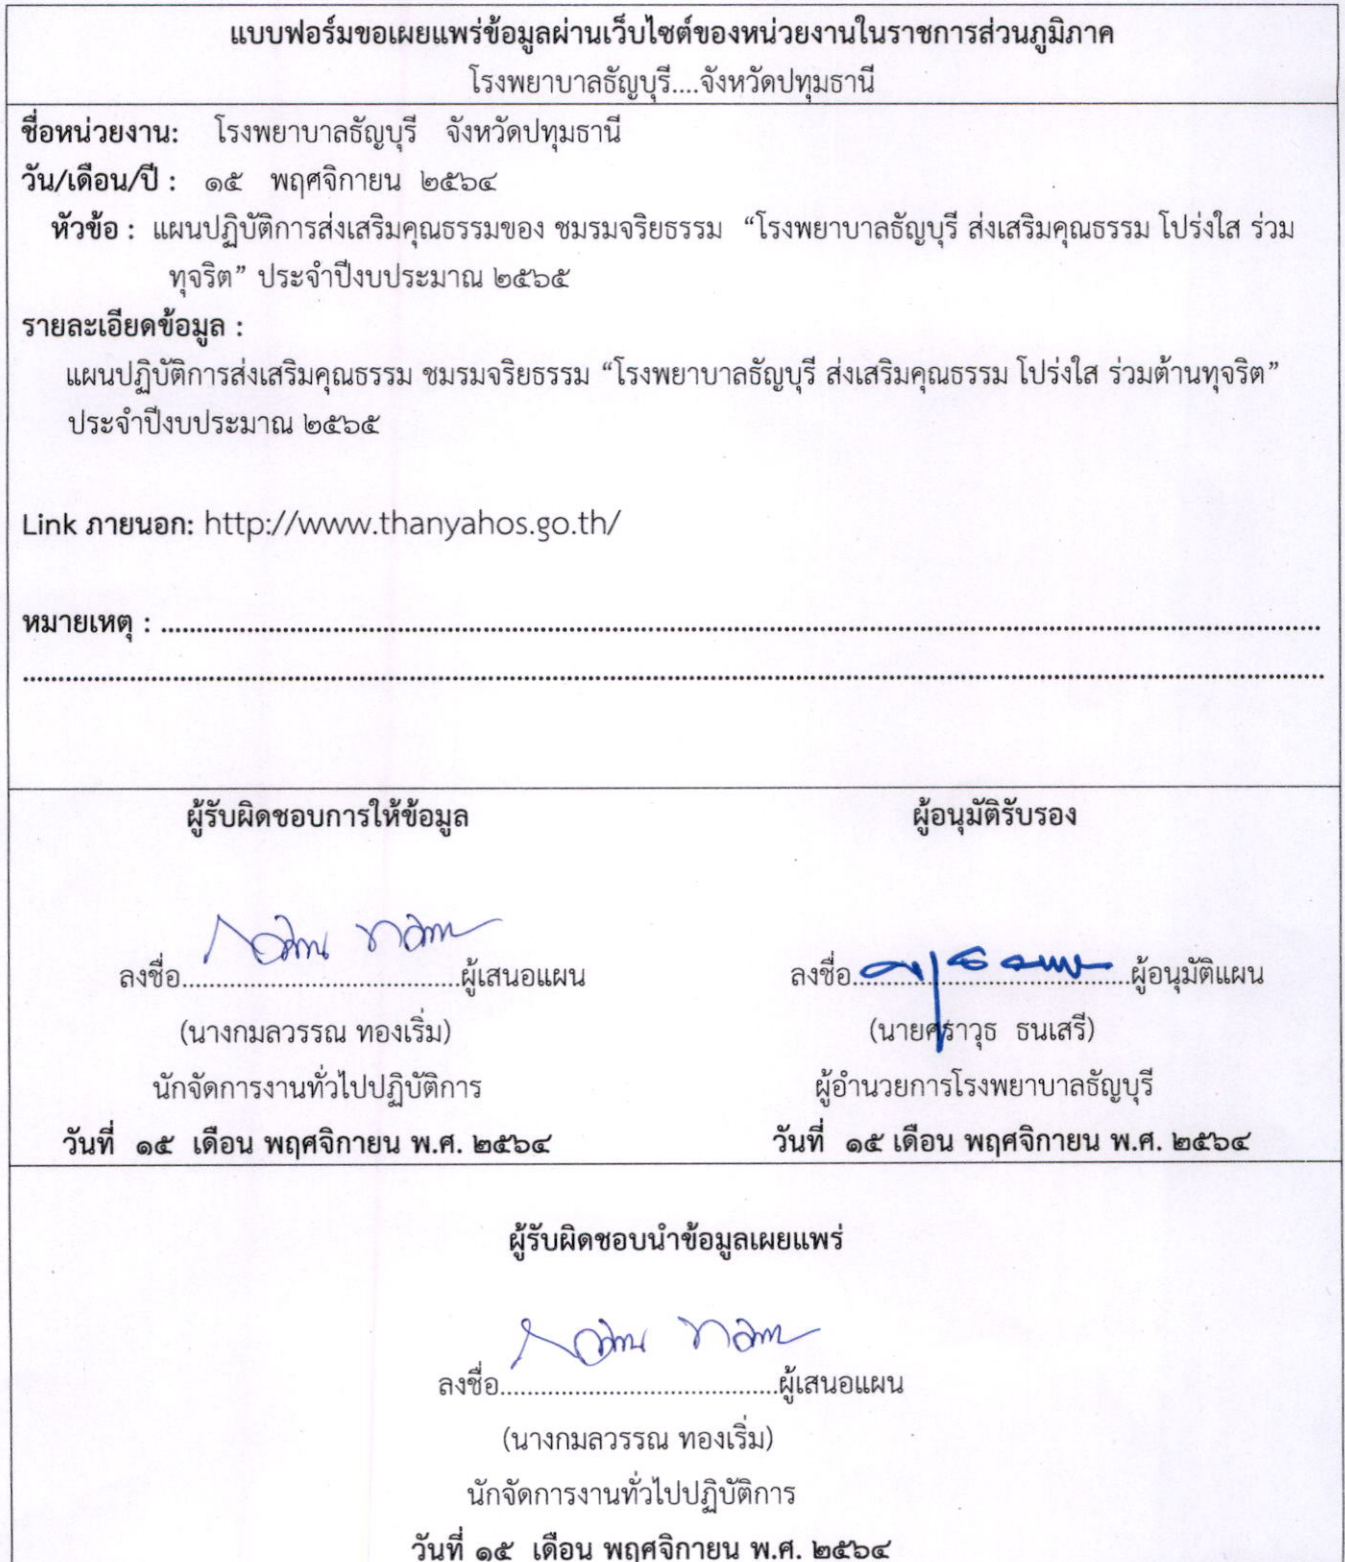 แบบฟอร์มขอเผยแพร่ข้อมูลผ่านเว็บไซต์ของหน่วยงานในราชการส่วนภูมิภาค
โรงพยาบาลธัญบุรี....จังหวัดปทุมธานี
ชื่อหน่วยงาน: โรงพยาบาลธัญบุรี จังหวัดปทุมธานี
วัน/เดือน/ปี : ๑๕ พฤศจิกายน ๒๕๖๔
หัวข้อ : แผนปฏิบัติการส่งเสริมคุณธรรมของ ชมรมจริยธรรม “โรงพยาบาลธัญบุรี ส่งเสริมคุณธรรม โปร่งใส ร่วม
ทุจริต” ประจำปีงบประมาณ ๒๕๖๕
รายละเอียดข้อมูล :
แผนปฏิบัติการส่งเสริมคุณธรรม ชมรมจริยธรรม “โรงพยาบาลธัญบุรี ส่งเสริมคุณธรรม โปร่งใส ร่วมต้านทุจริต”
ประจำปีงบประมาณ ๒๕๖๕
Link ภายนอก: http://www.thanyahos.go.th/
หมายเหตุ : ....................................................................................
....................................................................................
ผู้รับผิดชอบการให้ข้อมูล ผู้อนุมัติรับรอง
ลงชื่อ........................................ผู้เสนอแผน ลงชื่อ........................................ผู้อนุมัติแผน
(นางกมลวรรณ ทองเริ่ม) (นายศราวุธ ธนเสรี)
นักจัดการงานทั่วไปปฏิบัติการ ผู้อำนวยการโรงพยาบาลธัญบุรี
วันที่ ๑๕ เดือน พฤศจิกายน พ.ศ. ๒๕๖๔ วันที่ ๑๕ เดือน พฤศจิกายน พ.ศ. ๒๕๖๔
ผู้รับผิดชอบนำข้อมูลเผยแพร่
ลงชื่อ........................................ผู้เสนอแผน
(นางกมลวรรณ ทองเริ่ม)
นักจัดการงานทั่วไปปฏิบัติการ
วันที่ ๑๕ เดือน พฤศจิกายน พ.ศ. ๒๕๖๔